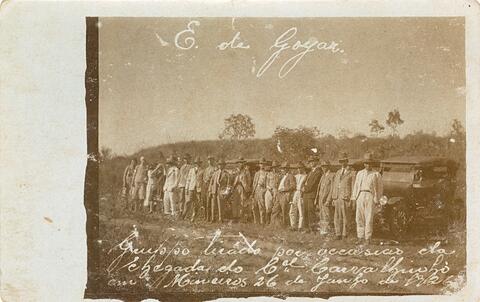 E. de Goyaz.
Gruppo tirado por occasião da
chegada do Cel. Carvalhinho
em Mineiros 26 de Junho de 192